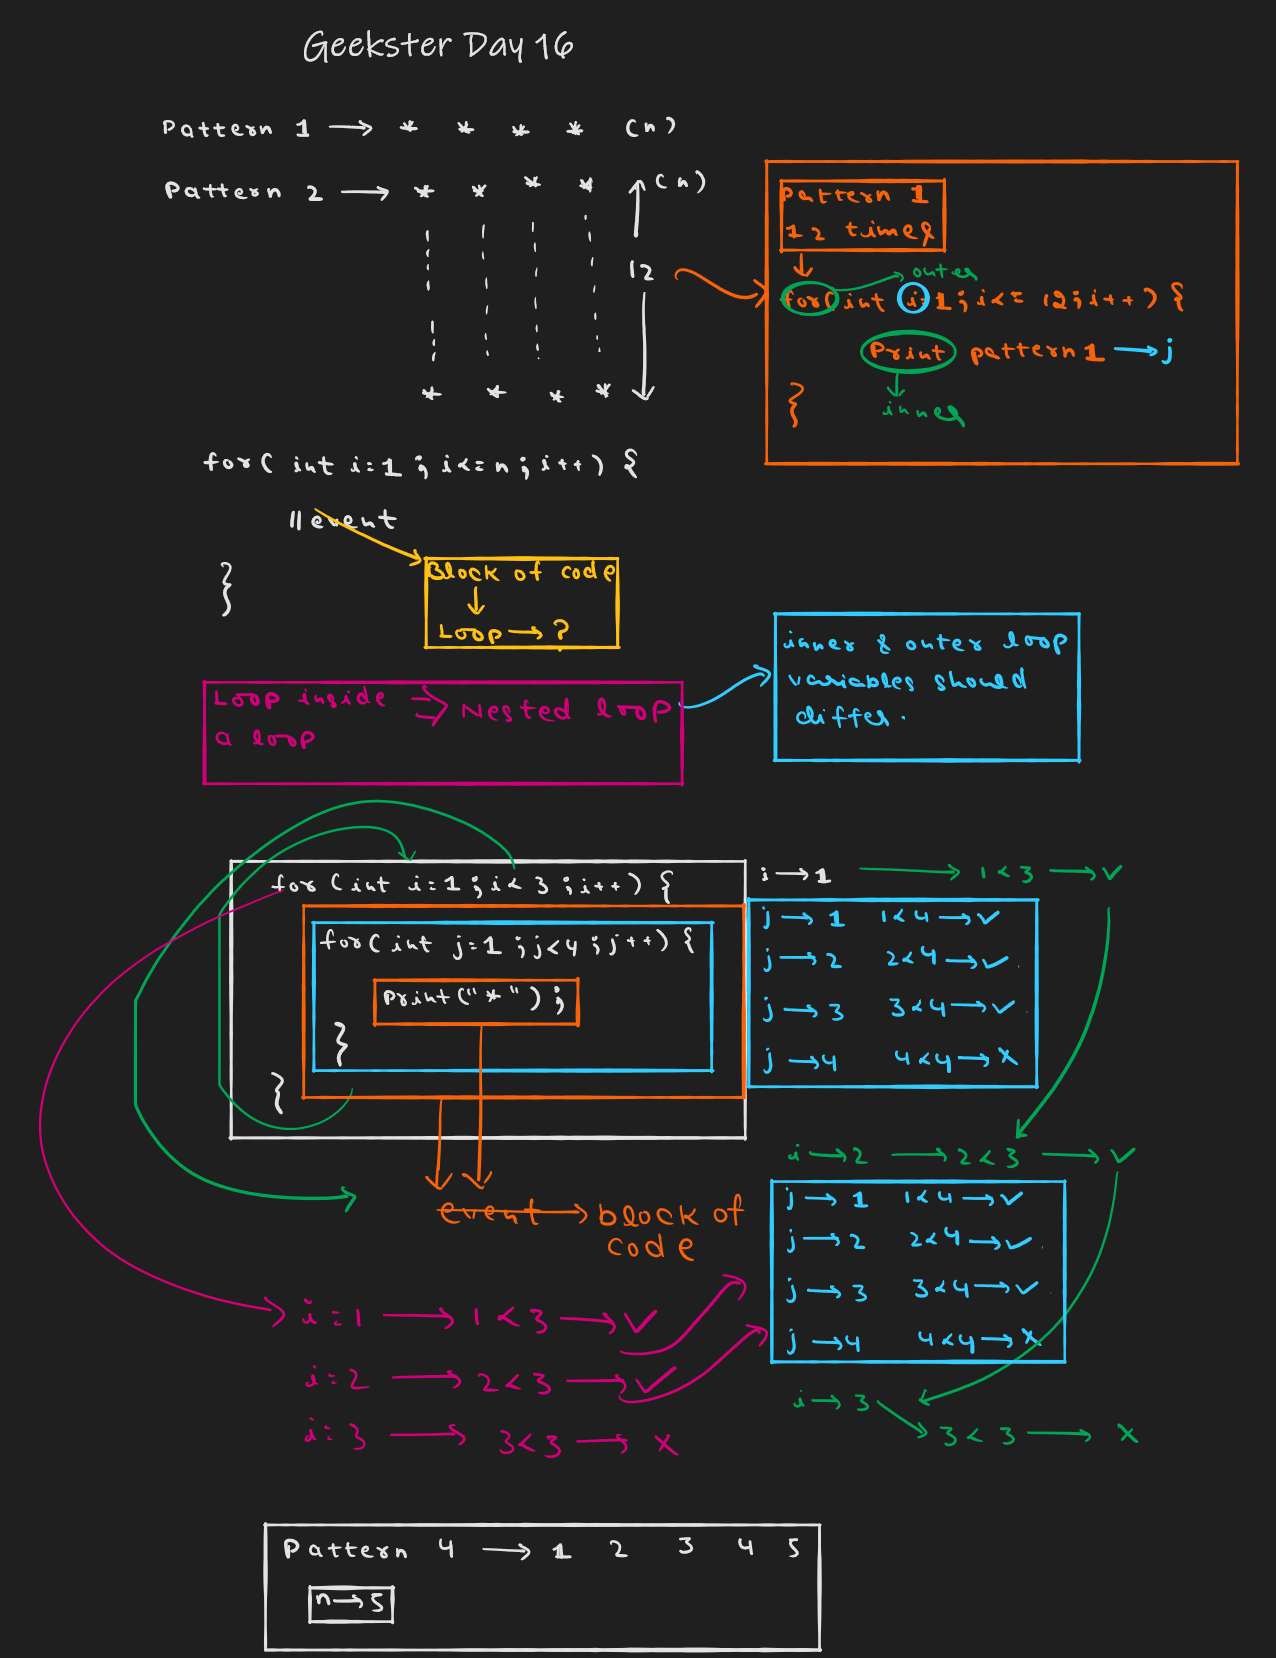 Geekster Day 16
Pattern 1 → * * * * (n)
Pattern 2 → * * * * (n)
12
* * * *
pattern 1
12 times
outer
for(int i=1;i<=12;i++){
Print pattern 1 → j
}
inner
for( int i=1 ; i<=n ; i++) {
||event
}
Block of code
↓
Loop → ?
Loop inside ⇒ Nested loop
a loop
inner & outer loop
variables should
differ.
for (int i=1 ; i<3 ; i++) {
for( int j=1 ; j<4 ; j++) {
Print("*") ;
}
}
event → block of
code
i → 1 → 1<3 → ✓
j → 1 1<4 → ✓
j → 2 2<4 → ✓
j → 3 3<4 → ✓
j → 4 4<4 → x
i → 2 → 2<3 → ✓
j → 1 1<4 → ✓
j → 2 2<4 → ✓
j → 3 3<4 → ✓
j → 4 4<4 → x
i → 3
3<3 → x
i=1 → 1<3 → ✓
i=2 → 2<3 → ✓
i=3 → 3<3 → x
Pattern 4 → 1 2 3 4 5
n → 5